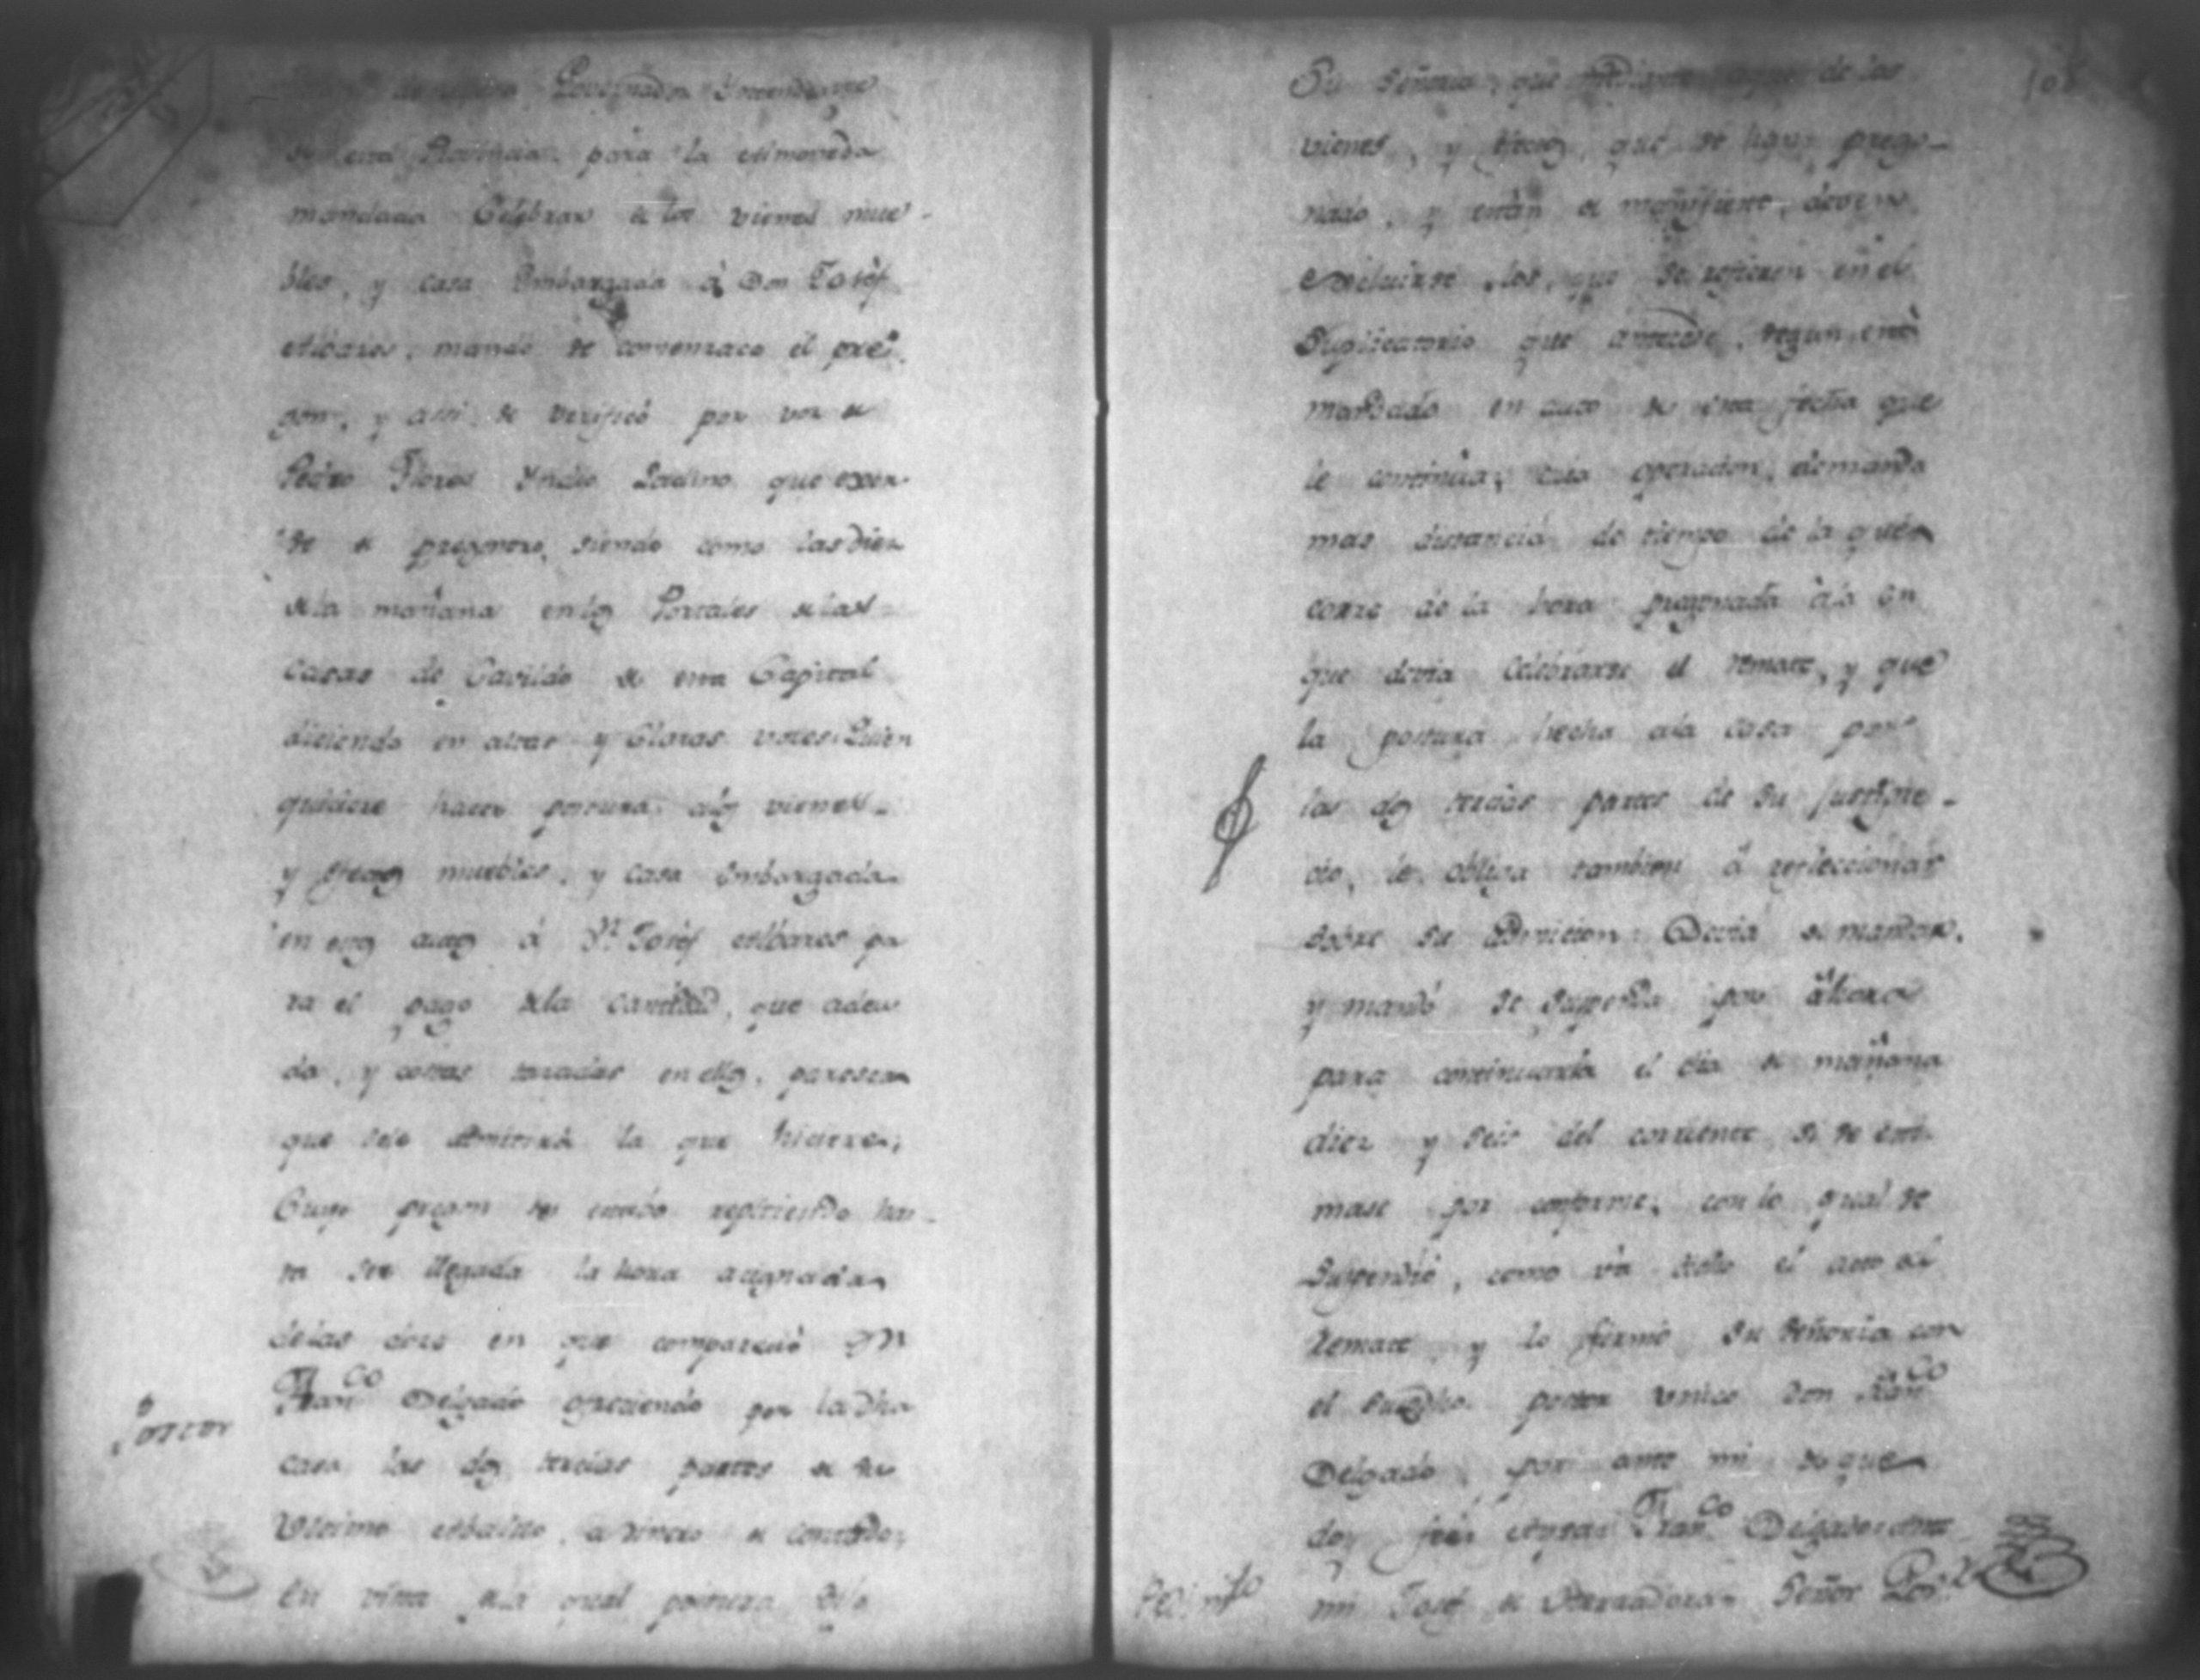 Governador Yntendente
de esta Provincia para la almoneda
mandada Celebrar de los vienes mue-
bles, y casa Embargada à Don Josèf
Albares, mandò se comenzace el pre-
gon, y assi se verificò por voz de
Pedro Flores Yndio Ladino que exer-
se de pregonero, siendo como las diez
de la mañana en los Portales de las
Casas de Cavildo de esta Capital
diciendo en altas y Claras voces: Quien
quisiere hacer postura alos vienes
y efectos muebles, y casa Embargada
en estos autos à Dn Josèf Albares pa
ra el pago dela cantidad, que adeu
da, y costas tazadas en ellos, paresca
que sele admitirá la que hiciere;
Cuyo pregon se estubo repitiendo has-
ta ser llegada la hora acignada
delas doce en que compareciò Dn
Postor
Franco Delgado ofreciendo por la dha
casa las dos tercias partes de su
Ultimo Abaluo, a dinero de contado;
En vista dela qual postura dijo
108
Su Señoria, que de los
vienes, y efectos, que se han prego-
nado, y están de manifiesto, deven
excluirse los, que se refieren en el
Suplicatorio que antecede, segun está
mandado en auto de esta fecha que
le continúa; cuia operacion, demanda
mas distancia de tiempo de la que
corre de la hora pregonada à la en
que devia Celebrarse el remate, y que
la postura hecha ala casa por
las dos tercias partes de su justipre-
cio, le obliga tambien á refleccionar
sobre su admicion: Devia de mandar,
y mandó se suspenda por ahora
para continuarla el dia de mañana
diez y seis del corriente si se esti-
mase por conforme; con lo qual se
Suspendió, como và dicho el acto del
Remate y lo firmò Su Señoria con
el susodho. postor unico Don Franco
Delgado, por ante mi de que
doy feé: Franco Delgado: ante
mi Josef de Señor
Pedimto